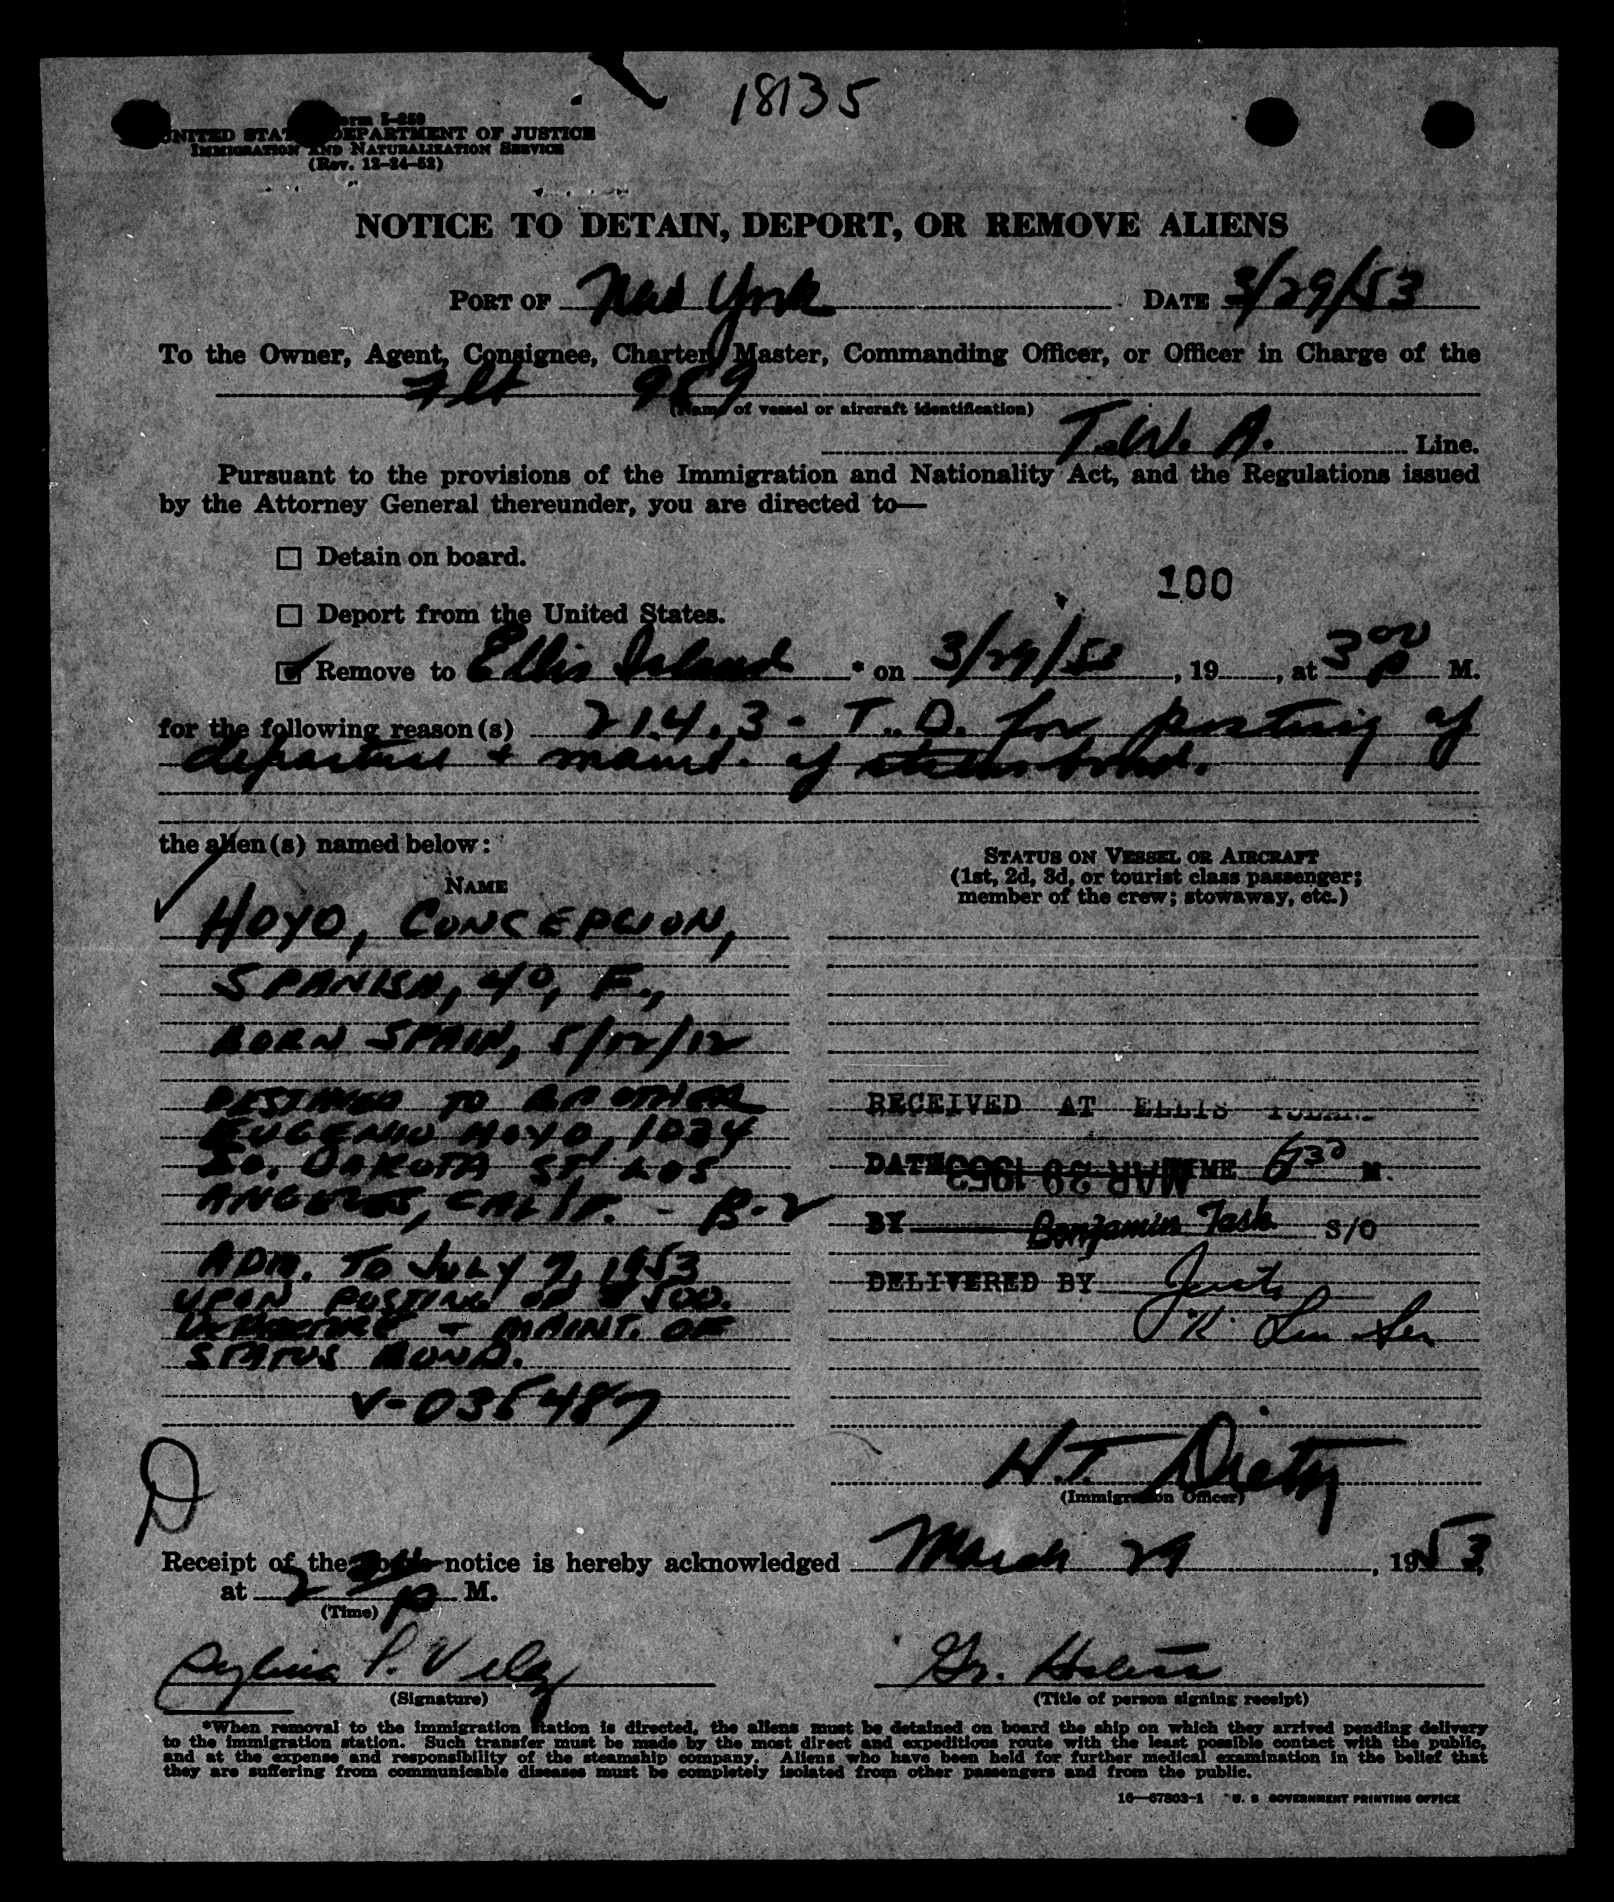 18135
Form I-259
UNITED STATES DEPARTMENT OF JUSTICE
IMMIGRATION AND NATURALIZATION SERVICE
(Rev. 12-24-52)
NOTICE TO DETAIN, DEPORT, OR REMOVE ALIENS
PORT OF New York DATE 3/29/53
To the Owner, Agent, Consignee, Charter, Master, Commanding Officer, or Officer in Charge of the
Flt 959
(Name of vessel or aircraft identification)
T.W.A. Line.
Pursuant to the provisions of the Immigration and Nationality Act, and the Regulations issued
by the Attorney General thereunder, you are directed to—
Detain on board.
100
Deport from the United States.
Remove to Ellis Island * on 3/29/53, 19, at 3 00 P M.
for the following reason(s) 214.3 - T.D. for posting of
departure + maint. of status bond.
the alien(s) named below:
STATUS ON VESSEL OR AIRCRAFT
(1st, 2d, 3d, or tourist class passenger;
member of the crew; stowaway, etc.)
NAME
HOYO, CONCEPCION,
SPANISH, 40, F.,
BORN SPAIN, 5/12/12
DESTINED TO BROTHER
EUGENIO HOYO, 1034
SO. DAKOTA ST LOS
ANGELES, CALIF. - B-2
ADM. TO JULY 9, 1953
UPON POSTING OF $500.
DEPARTURE + MAINT. OF
STATUS BOND.
V-035487
RECEIVED AT ELLIS ISLAND
DATE MAR 29 1953 TIME 6 30 M.
BY Benjamin Task S/O
DELIVERED BY
H.T. Dietz
(Immigration Officer)
D
Receipt of the above notice is hereby acknowledged March 29, 1953,
at 2 P M.
(Time)
P. Velez
(Signature)
Gr. Hostess
(Title of person signing receipt)
*When removal to the immigration station is directed, the aliens must be detained on board the ship on which they arrived pending delivery
to the immigration station. Such transfer must be made by the most direct and expeditious route with the least possible contact with the public,
and at the expense and responsibility of the steamship company. Aliens who have been held for further medical examination in the belief that
they are suffering from communicable diseases must be completely isolated from other passengers and from the public.
16—67803-1 U. S. GOVERNMENT PRINTING OFFICE